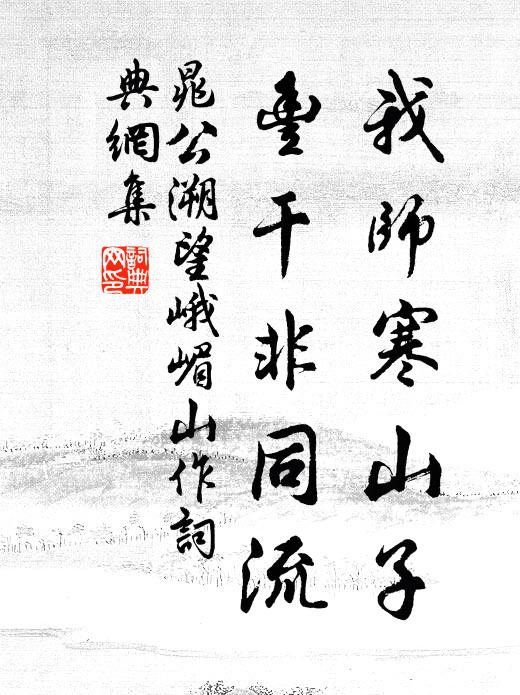 我師寒山子
豐干非同流
晁公溯望峨嵋山作詞
典網集
詞典
网印